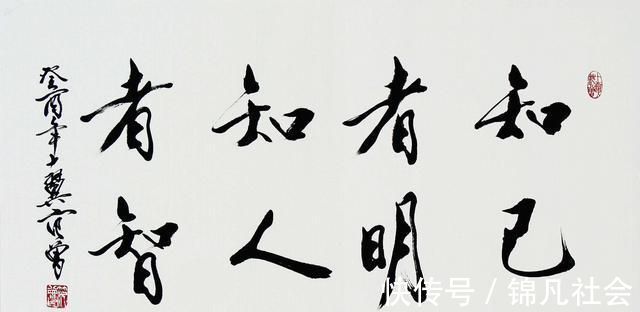 知己
者明
知人
者智
癸酉年十翼范曾
快传号 / 锦凡社会